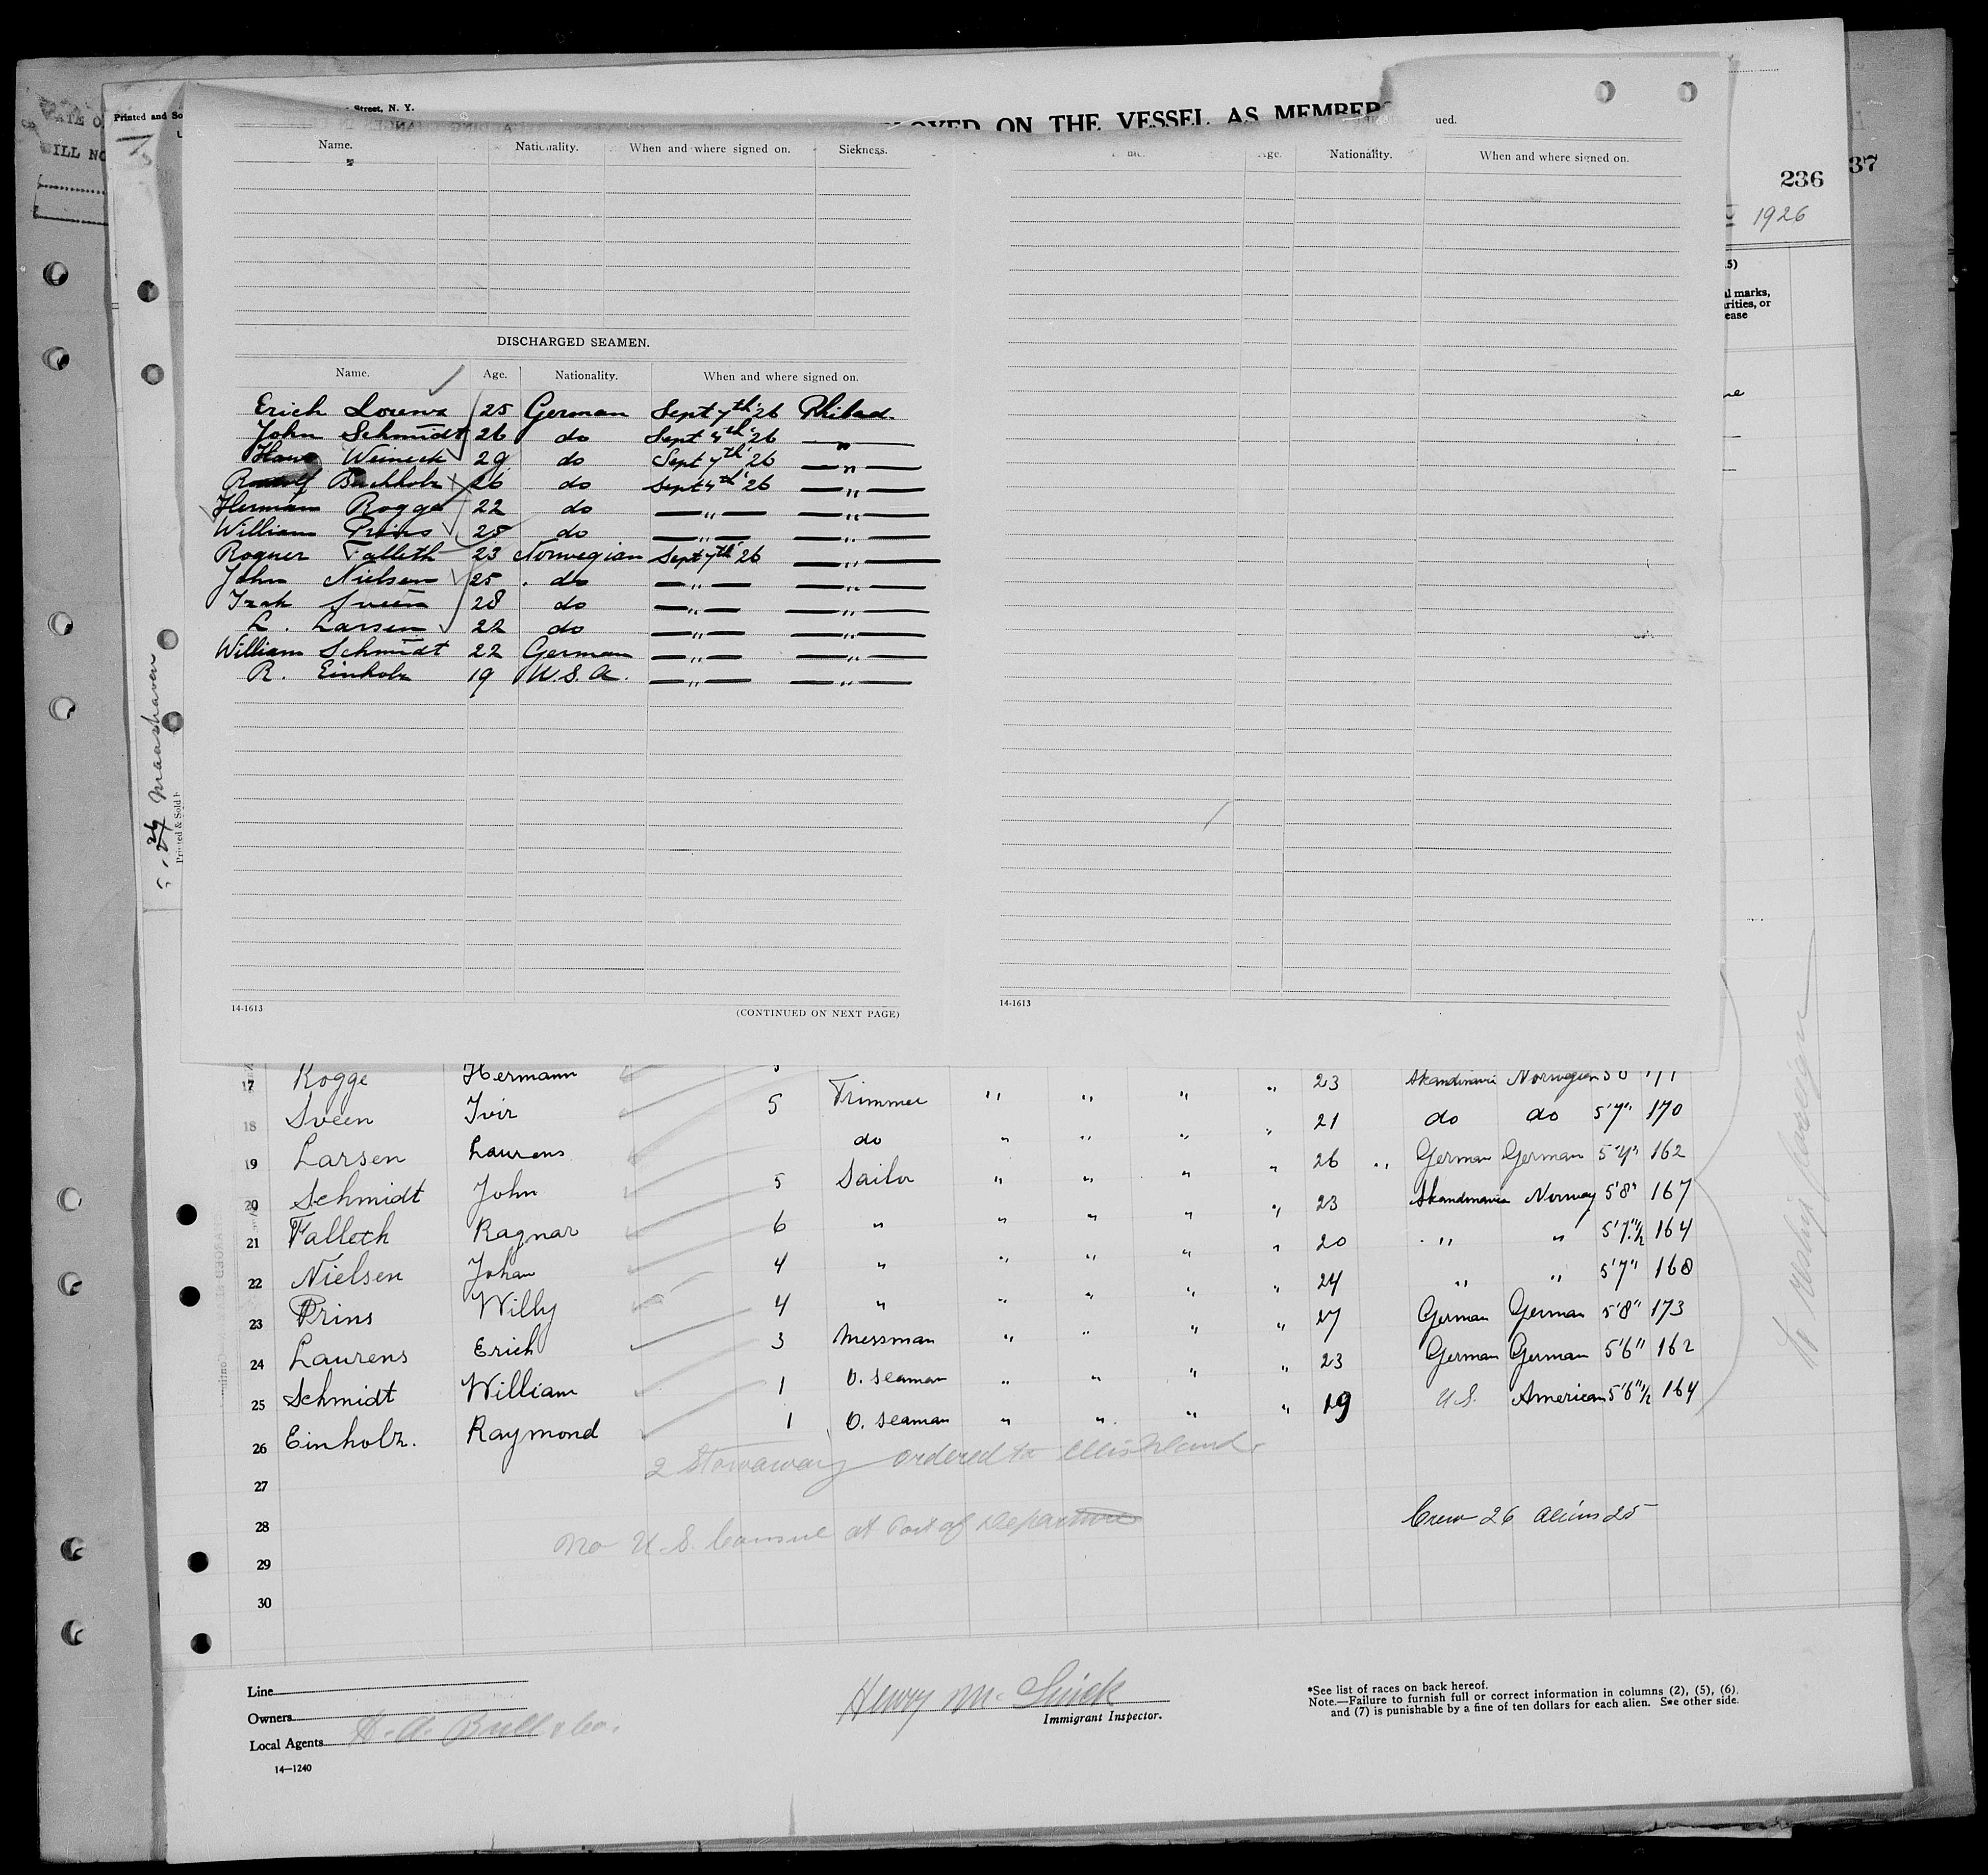 Street, N. Y.
Printed and So
OYED ON THE VESSEL AS MEMBERS
ued.
ATE O
ILL NO
37
236
1926
Name. Nationality. When and where signed on. Sickness.
Age. Nationality. When and where signed on.
5)
al marks,
arities, or
ease
DISCHARGED SEAMEN.
Name. Age. Nationality. When and where signed on.
Erich Lorenz 25 German Sept 7th '26 Philad.
John Schmidt 26 do Sept 4th '26 — " —
Hans Weineck 29 do Sept 7th '26 — " —
Rudolf Buchholz 26 do Sept 4th '26 — " —
Herman Rogge 22 do — " — — " —
William Prins 25 do — " — — " —
Rogner Falleth 23 Norwegian Sept 7th '26 — " —
John Nielsen 25 do — " — — " —
Isak Sveen 28 do — " — — " —
L. Larsen 22 do — " — — " —
William Schmidt 22 German — " — — " —
R. Einholz 19 U.S.A. — " — — " —
Maashaven
Printed & Sold b
14-1613 (CONTINUED ON NEXT PAGE)
14-1613
17 Rogge Hermann
18 Sveen Ivir 5 Trimmer " " " " 23 Skandinavia Norwegian 171
19 Larsen Laurens do " " " " 21 do do 5'7" 170
20 Schmidt John 5 Sailor " " " " 26 " German German 5'4" 162
21 Falleth Ragnar 6 " " " " " 23 Skandinavia Norway 5'8" 167
22 Nielsen Johan 4 " " " " " 20 " " 5'7"½ 164
23 Prins Willy 4 " " " " " 24 " " 5'7" 168
24 Laurens Erich 3 Messman " " " " 27 German German 5'8" 173
25 Schmidt William 1 O. seaman " " " " 23 German German 5'6" 162
26 Einholz. Raymond 1 O. seaman " " " " 19 U.S. American 5'6"½ 164
2 Stowaway ordered to Ellis Island.
27
28 Crew 26 Aliens 25
No U.S. Consul at Port of Departure
29
30
Line
Owners
Local Agents A. H. Bull & Co.
14—1240
Henry Mc
Immigrant Inspector.
*See list of races on back hereof.
Note.—Failure to furnish full or correct information in columns (2), (5), (6),
and (7) is punishable by a fine of ten dollars for each alien. See other side.